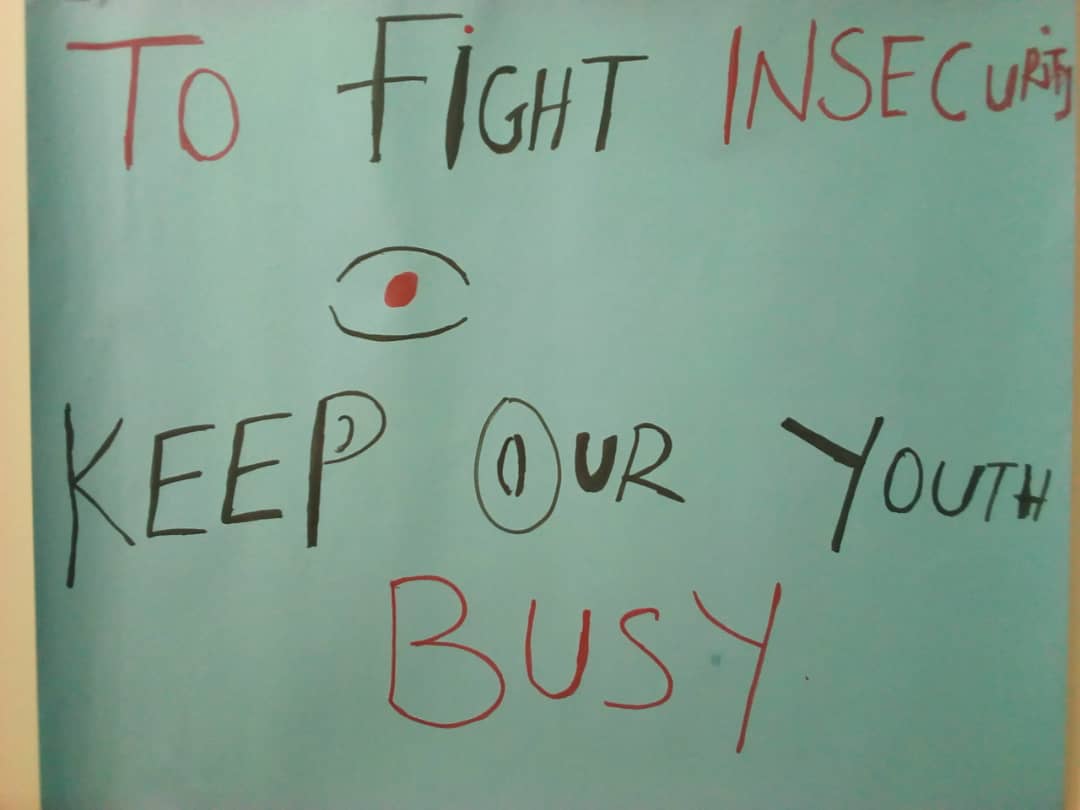 TO FiGHT INSECURiTY
KEEP OUR YOUTH
BUSY